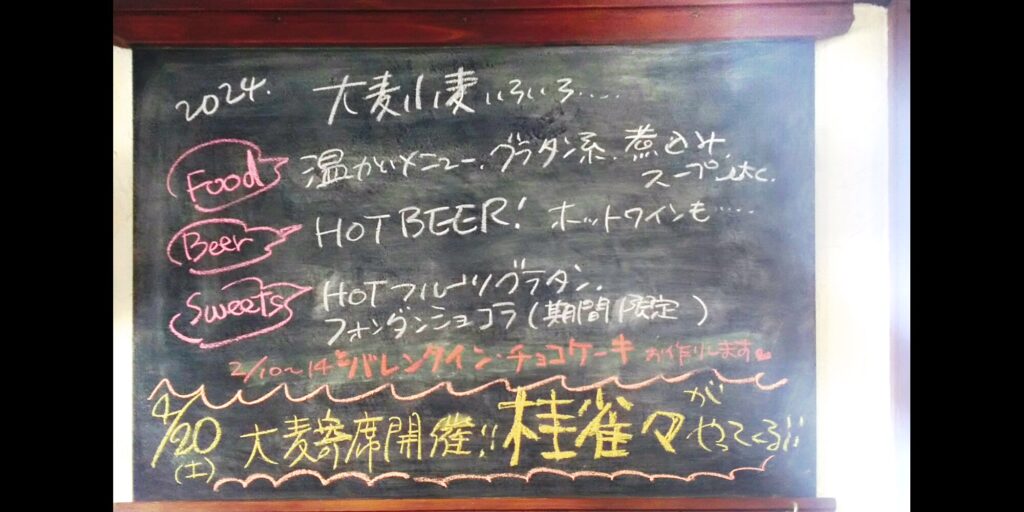 2024. 大麦小麦いろいろ....
Food 温かいメニュー、グラタン系、煮込み、
スープ etc.
Beer HOT BEER! ホットワインも....
Sweets HOTフルーツグラタン、
フォンダンショコラ(期間限定)
2/10~14 バレンタイン・チョコケーキ お作りします
4/20(土) 大麦寄席開催!! 桂雀々がやってくる!!